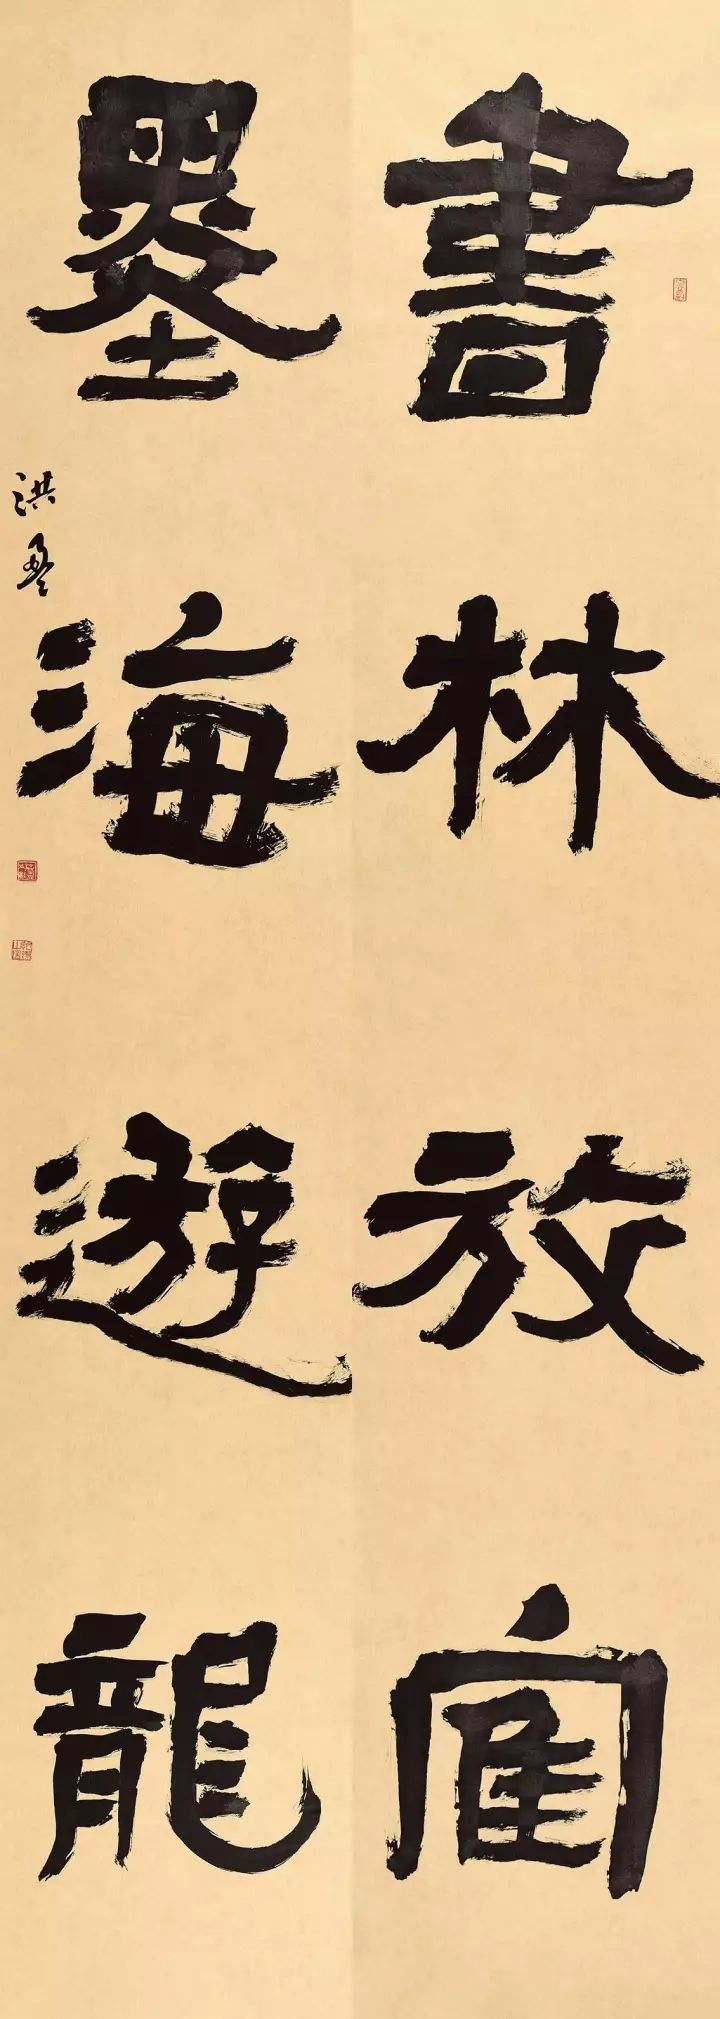 書林放寉
墨海遊龍
洪